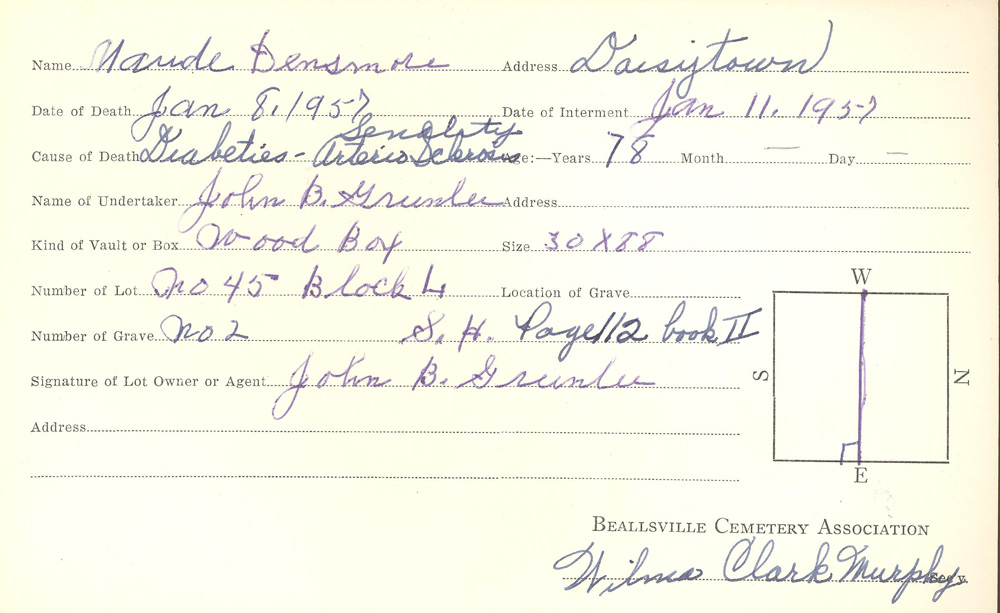 Name Maude Densmore Address Daisytown
Date of Death Jan 8, 1957 Date of Interment Jan 11, 1957
Senality
Cause of Death Diabeties - Arterio Sclerosis Age:—Years 78 Month — Day —
Name of Undertaker John B. Greenlee Address
Kind of Vault or Box Wood Box Size 30 X 88
Number of Lot No 45 Block 4 Location of Grave
Number of Grave No 2 S. H. Page 112 book II
Signature of Lot Owner or Agent John B. Greenlee
Address
W
S N
E
BEALLSVILLE CEMETERY ASSOCIATION
Wilma Clark Murphy Sec'y.